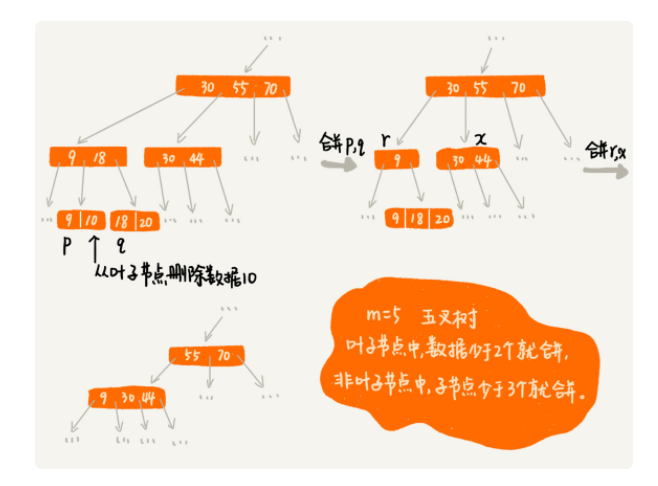 30 55 70
9 18
30 44
9 10
18 20
p
q
从叶子节点删除数据10
合并p,q
30 55 70
r
x
9
30 44
9 18 20
合并r,x
55 70
9 30 44
m=5 五叉树
叶子节点中,数据少于2个就合并,
非叶子节点中,子节点少于3个就合并。